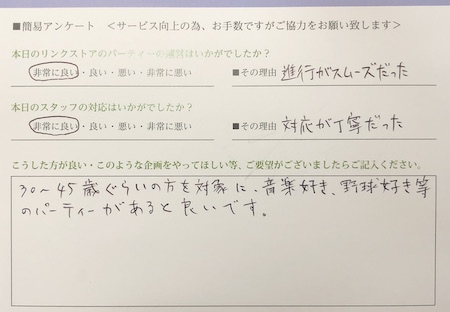 ■簡易アンケート ＜サービス向上の為、お手数ですがご協力をお願い致します＞
本日のリンクストアのパーティーの運営はいかがでしたか？
非常に良い・良い・悪い・非常に悪い ■その理由 進行がスムーズだった
本日のスタッフの対応はいかがでしたか？
非常に良い・良い・悪い・非常に悪い ■その理由 対応が丁寧だった
こうした方が良い・このような企画をやってほしい等、ご要望がございましたらご記入ください。
30〜45歳ぐらいの方を対象に、音楽好き、野球好き等
のパーティーがあると良いです。